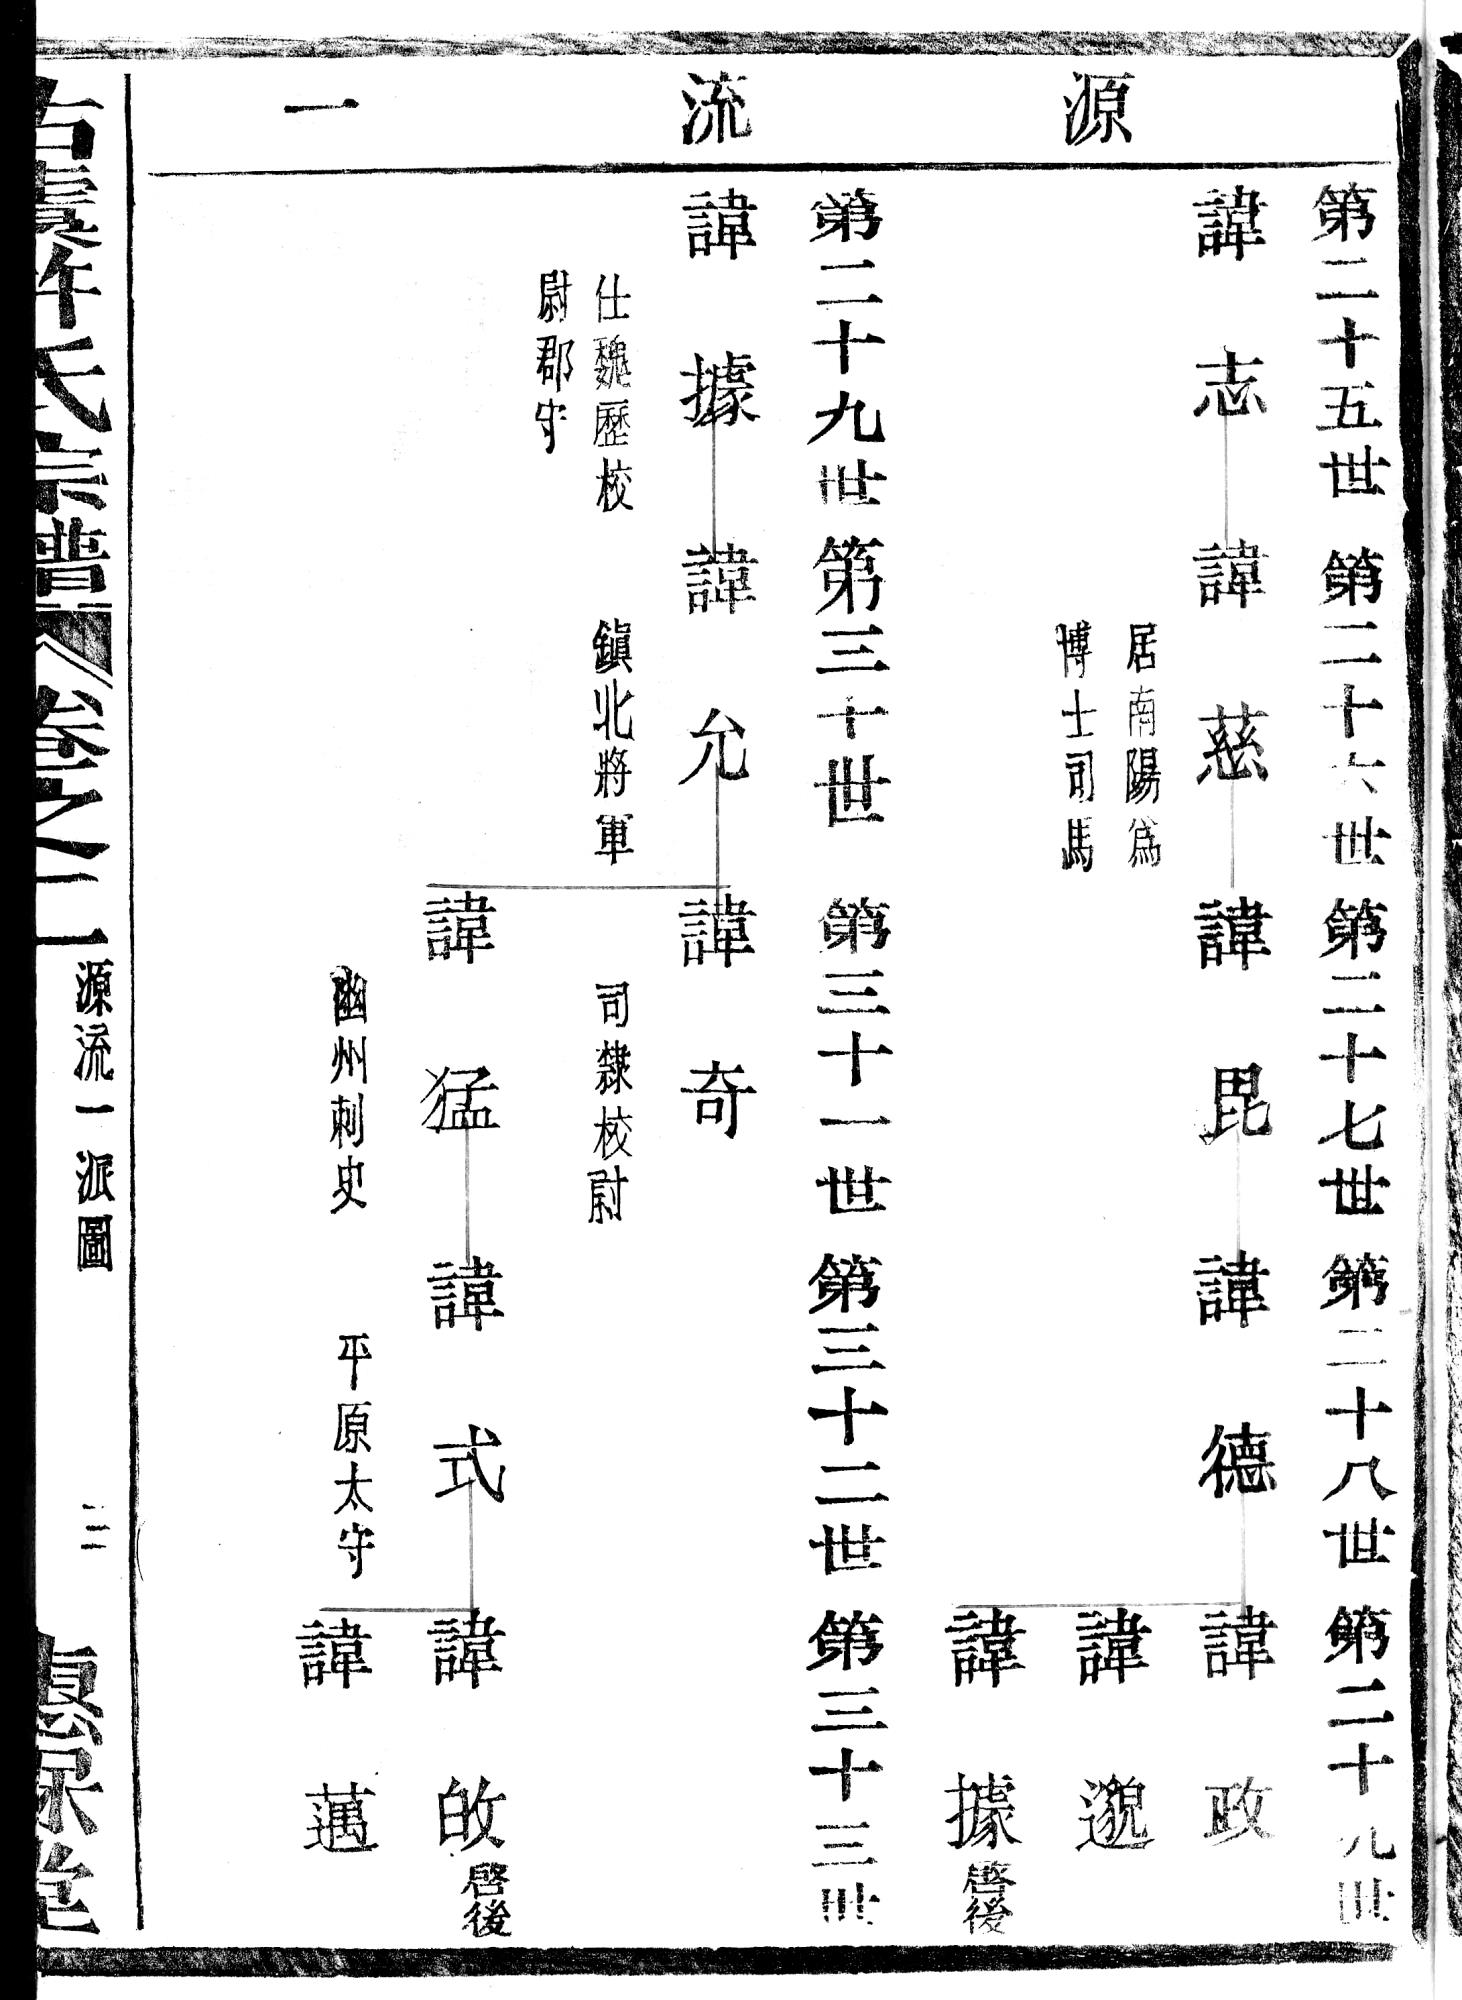 源流一
第二十五世 第二十六世 第二十七世 第二十八世 第二十九世
諱志 諱慈 諱毘 諱德 諱政
居南陽爲
博士司馬
諱邈
諱據 啓後
第二十九世 第三十世 第三十一世 第三十二世 第三十三世
諱據 諱允 諱奇
仕魏歷校 鎮北將軍 司隸校尉
尉郡守
諱猛 諱式 諱皊 啓後
幽州刺史 平原太守
諱邁
古虞許氏宗譜 卷之二 源流一派圖 三 惠保堂